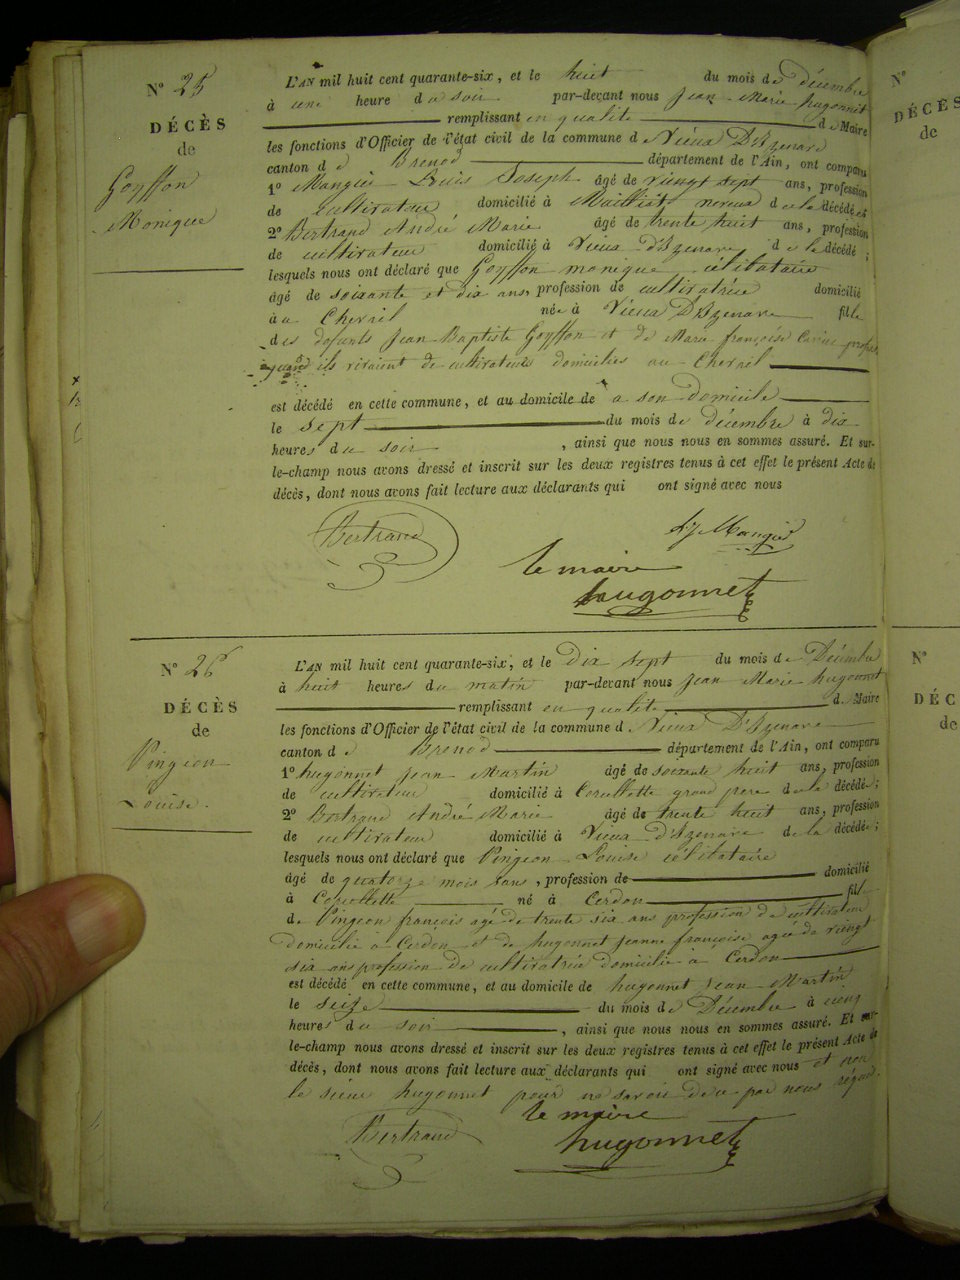 N° 25
DÉCÈS
de
Goyffon
Monique
L'AN mil huit cent quarante-six, et le huit du mois de Décembre
à une heure du soir par-devant nous Jean Marie hugonnet
remplissant en qualité de Maire
les fonctions d'Officier de l'état civil de la commune d Vieux D'Izenave
canton d e Brenod département de l'Ain, ont comparu
1° Mangié Louis Joseph âgé de vingt sept ans, profession
de cultivateur domicilié à Mailliat neveux de la décédée
2° Bertrand André Marie âgé de trente huit ans, profession
de cultivateur domicilié à Vieux d'Izenave de la décédé ;
lesquels nous ont déclaré que Goyffon monique célibataire
âgé de soixante et dix ans, profession de cultivatrice domicilié
à au Chevril née à Vieux D'Izenave fille
des defunts Jean Baptiste Goyffon et de Marie françoise
quand ils vivaient de cultivateurs domiciliés au Chevril
est décédé en cette commune, et au domicile de a son domicile
le sept du mois de décembre à dix
heures du soir , ainsi que nous nous en sommes assuré. Et sur-
le-champ nous avons dressé et inscrit sur les deux registres tenus à cet effet le présent Acte de
décès, dont nous avons fait lecture aux déclarants qui ont signé avec nous
Bertrand
L. J. Mangié
le maire
hugonnet
N° 26
DÉCÈS
de
Pingeon
Louise.
L'AN mil huit cent quarante-six, et le Dix sept du mois de Décembre
à huit heures du matin par-devant nous Jean Marie hugonnet
remplissant en qualité de Maire
les fonctions d'Officier de l'état civil de la commune d Vieux D'Izenave
canton d e Brenod département de l'Ain, ont comparu
1° hugonnet jean Martin âgé de soixante huit ans, profession
de cultivateur domicilié à Corcellette grand pere de la décédée ;
2° Bertrand André Marie âgé de trente huit ans, profession
de cultivateur domicilié à Vieux d'Izenave de la décédée ;
lesquels nous ont déclaré que Pingeon Louise célibataire
âgé de quatorze mois sans , profession de domicilié
à Corcellette né à Cerdon fille
de Pingeon françois agé de trente six ans profession de cultivateur
domicilié à Cerdon et de hugonnet jeanne françoise agée de vingt
six ans profession de cultivatrice domicilié à Cerdon
est décédé en cette commune, et au domicile de hugonnet jean Martin
le seize du mois de Décembre à cinq
heures du soir , ainsi que nous nous en sommes assuré. Et sur-
le-champ nous avons dressé et inscrit sur les deux registres tenus à cet effet le présent Acte de
décès, dont nous avons fait lecture aux déclarants qui ont signé avec nous et non
le sieur hugonnet pour ne savoir de ce par nous
le maire
Bertrand
hugonnet
N°
DÉCÈS
de
N°
DÉC
de